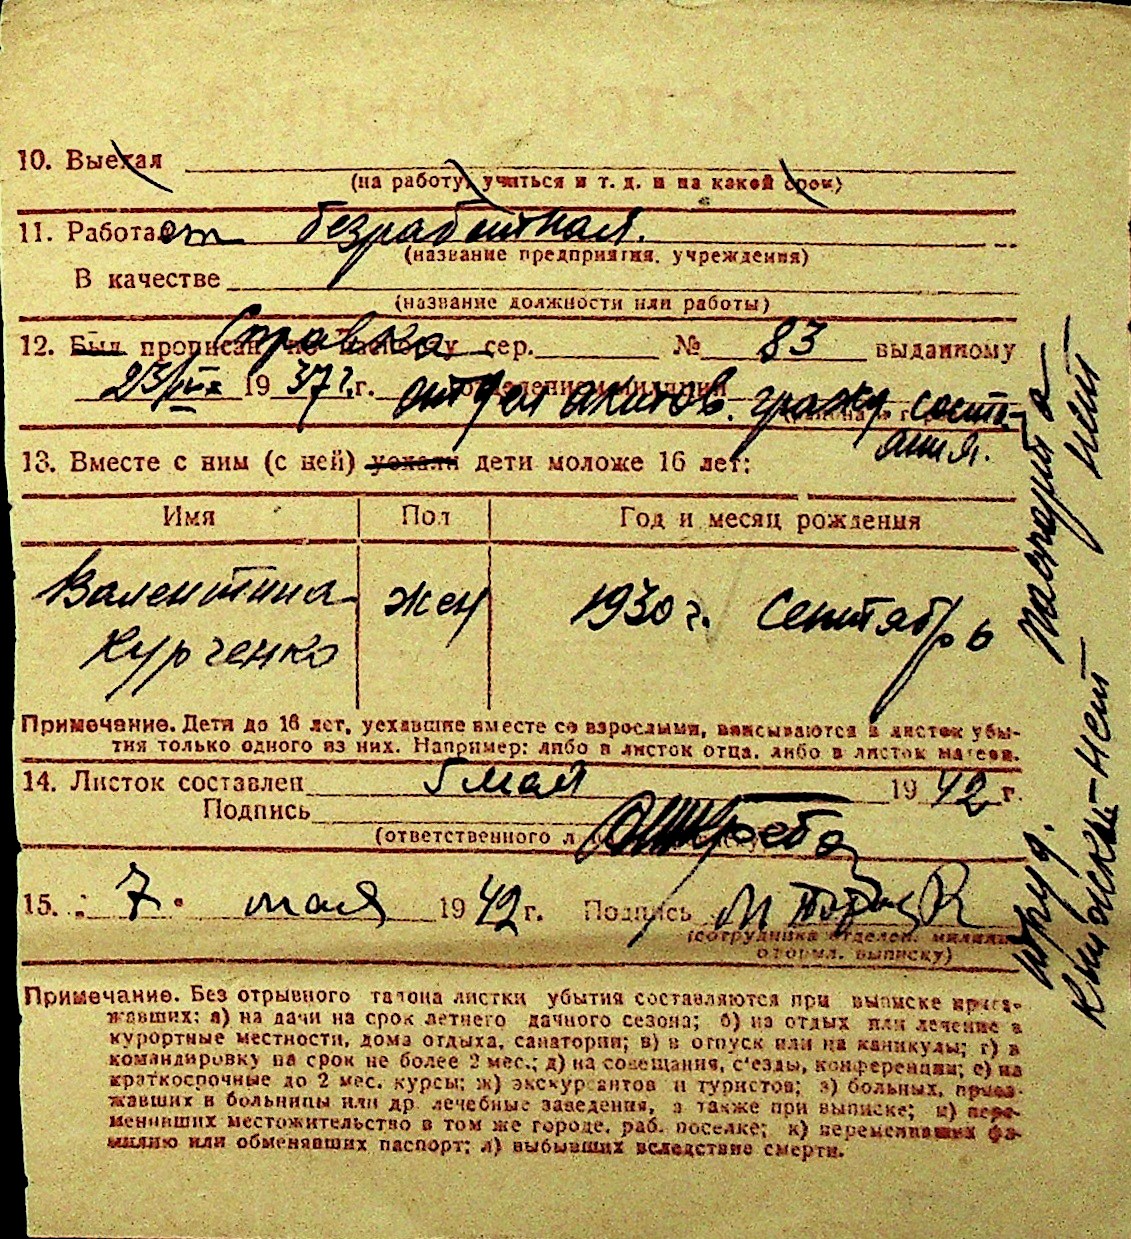 10. Выехал
(на работу, учиться и т. д. и на какой срок)
11. Работает безработная.
(название предприятия, учреждения)
В качестве
(название должности или работы)
Справка
12. Был прописан по паспорту сер. № 83 выданному
23/III 1937 г. г. отделением милиции
отдел актов. гражд. состо-
яния.
13. Вместе с ним (с ней) уехали дети моложе 16 лет:
Имя Пол Год и месяц рождения
Валентина жен 1930 г. Сентябрь
Курченко
Примечание. Дети до 16 лет, уехавшие вместе со взрослыми, вписываются в листок убы-
тия только одного из них. Например: либо в листок отца, либо в листок матери.
14. Листок составлен 5 мая 1942 г.
Подпись
(ответственного
15. 7 мая 1942 г. Подпись
(сотрудника отделен. милиции
оформл. выписку)
Примечание. Без отрывного талона листки убытия составляются при выписке приез-
жавших: а) на дачи на срок летнего дачного сезона; б) на отдых или лечение в
курортные местности, дома отдыха, санатории; в) в отпуск или на каникулы; г) в
командировку на срок не более 2 мес.; д) на совещания, с'езды, конференции; е) на
краткосрочные до 2 мес. курсы; ж) экскурсантов и туристов; з) больных, приез-
жавших в больницы или др. лечебные заведения, а также при выписке; и) пере-
менивших местожительство в том же городе, раб. поселке; к) переменивших фа-
милию или обменявших паспорт; л) выбывших вследствие смерти.
паспорта нет